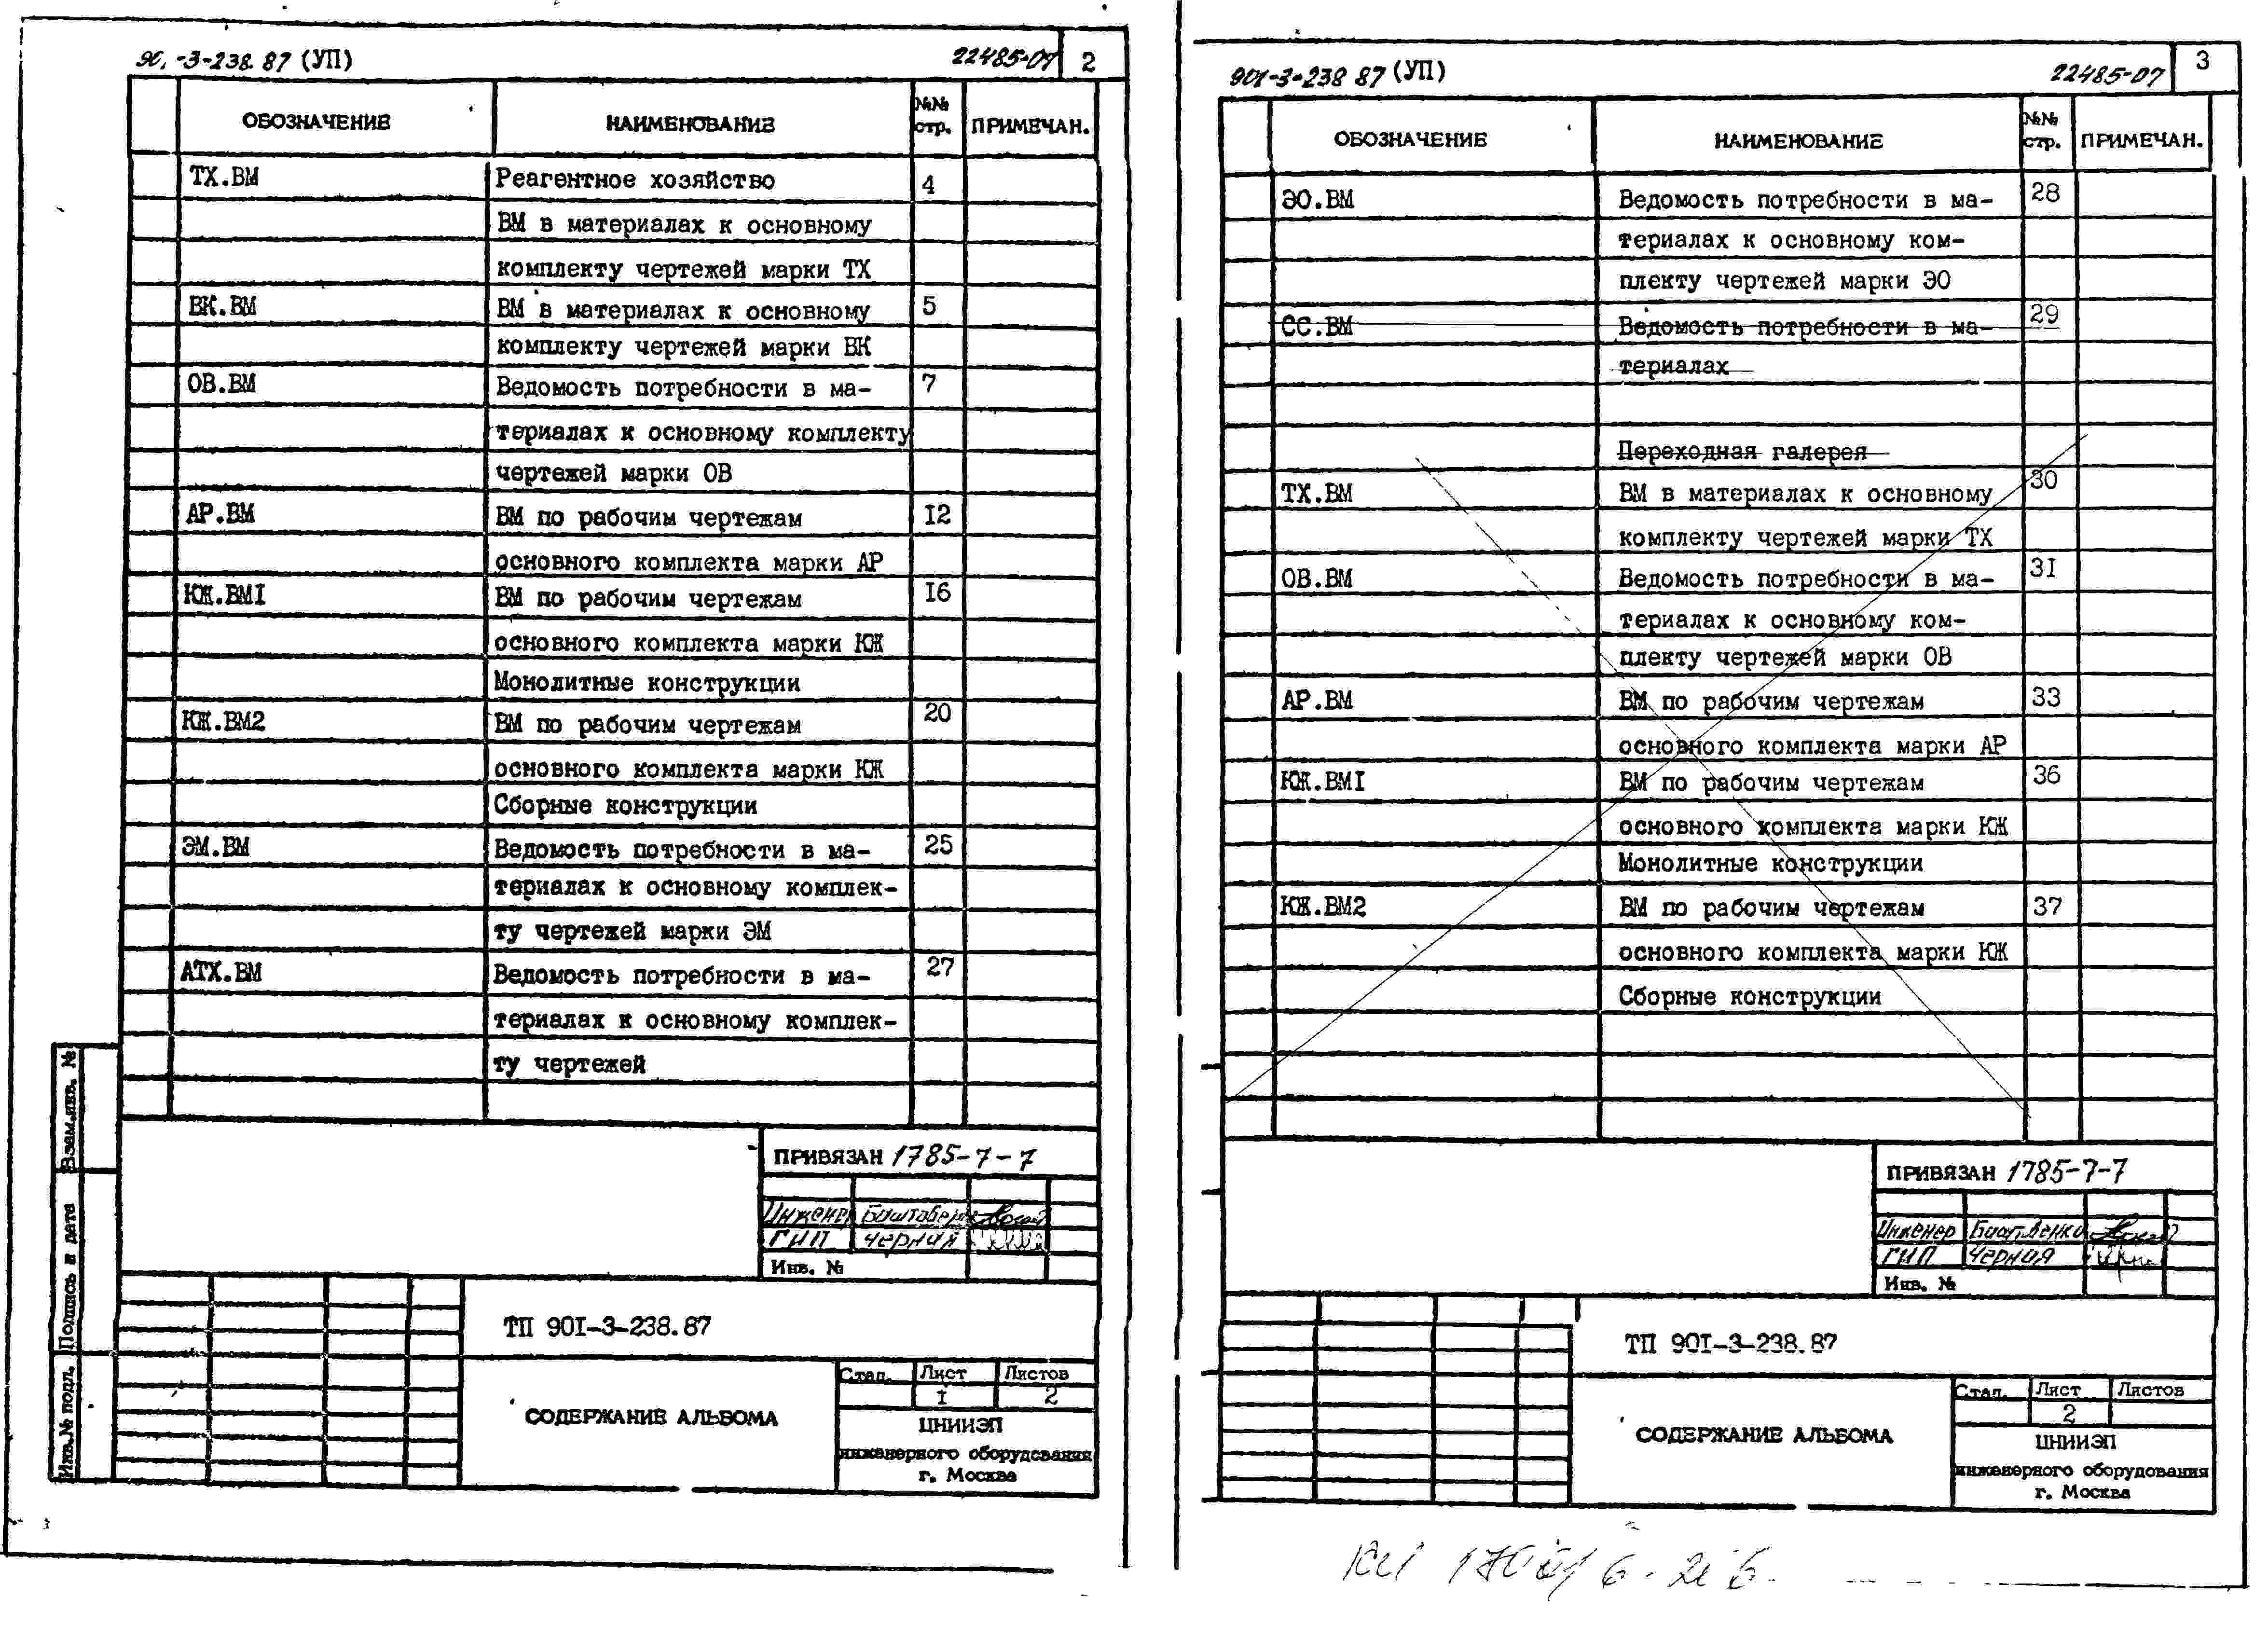 -3-238.87 (УП)
22485-07
2
ОБОЗНАЧЕНИЕ
НАИМЕНОВАНИЕ
№№ стр.
ПРИМЕЧАН.
ТХ.ВМ Реагентное хозяйство 4
ВМ в материалах к основному
комплекту чертежей марки ТХ
ВК.ВМ ВМ в материалах к основному 5
комплекту чертежей марки ВК
ОВ.ВМ Ведомость потребности в ма- 7
териалах к основному комплекту
чертежей марки ОВ
АР.ВМ ВМ по рабочим чертежам I2
основного комплекта марки АР
КЖ.ВМI ВМ по рабочим чертежам I6
основного комплекта марки КЖ
Монолитные конструкции
КЖ.ВМ2 ВМ по рабочим чертежам 20
основного комплекта марки КЖ
Сборные конструкции
ЭМ.ВМ Ведомость потребности в ма- 25
териалах к основному комплек-
ту чертежей марки ЭМ
АТХ.ВМ Ведомость потребности в ма- 27
териалах к основному комплек-
ту чертежей
ПРИВЯЗАН 1785-7-7
Инженер
ГИП Черная
Инв. №
ТП 90I-3-238.87
СОДЕРЖАНИЕ АЛЬБОМА
Стад. Лист Листов
I 2
ЦНИИЭП
инженерного оборудования
г. Москва
Взам.инв. №
Подпись и дата
Инв.№ подл.
901-3-238 87 (УП)
22485-07
3
ОБОЗНАЧЕНИЕ
НАИМЕНОВАНИЕ
№№ стр.
ПРИМЕЧАН.
ЭО.ВМ Ведомость потребности в ма- 28
териалах к основному ком-
плекту чертежей марки ЭО
СС.ВМ Ведомость потребности в ма- 29
териалах
Переходная галерея
ТХ.ВМ ВМ в материалах к основному 30
комплекту чертежей марки ТХ
ОВ.ВМ Ведомость потребности в ма- 3I
териалах к основному ком-
плекту чертежей марки ОВ
АР.ВМ ВМ по рабочим чертежам 33
основного комплекта марки АР
КЖ.ВМI ВМ по рабочим чертежам 36
основного комплекта марки КЖ
Монолитные конструкции
КЖ.ВМ2 ВМ по рабочим чертежам 37
основного комплекта марки КЖ
Сборные конструкции
ПРИВЯЗАН 1785-7-7
Инженер
ГИП Черная
Инв. №
ТП 90I-3-238.87
СОДЕРЖАНИЕ АЛЬБОМА
Стад. Лист Листов
2
ЦНИИЭП
инженерного оборудования
г. Москва